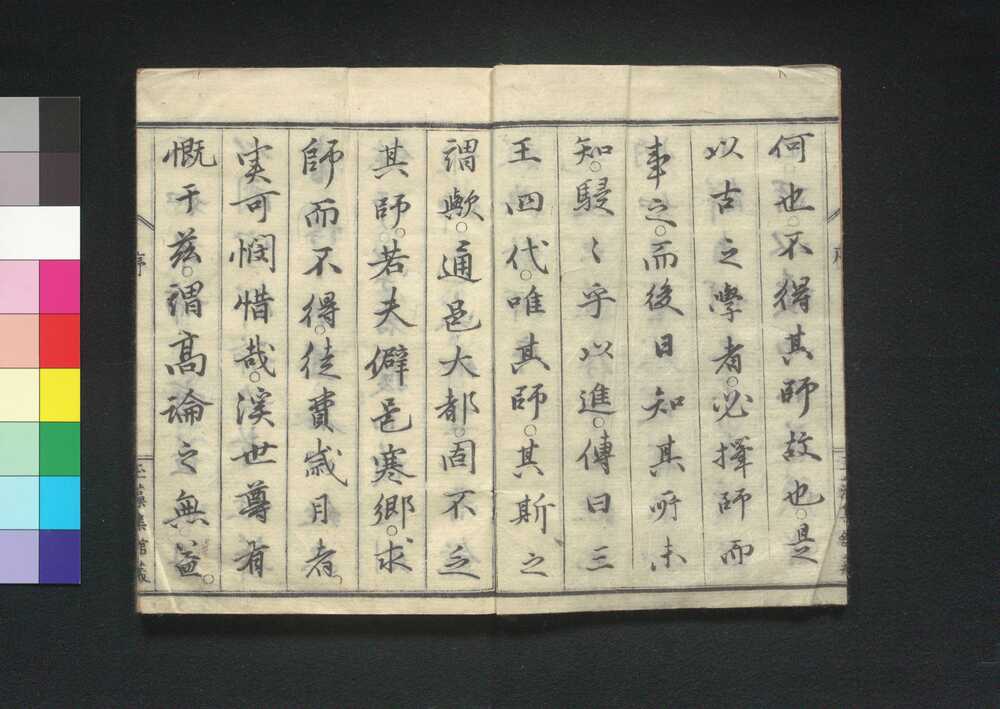 何也。不得其師故也。是
以古之學者。必擇師而
事之。而後日知其所未
知。駸〻乎以進。傳曰三
王四代。唯其師。其斯之
謂歟。通邑大都。固不乏
其師。若夫僻邑寒郷。求
師而不得。徒費歲月者。
実可憫惜哉。溪世尊有
慨于茲。謂高論之無益。
序
玉藻集館藏